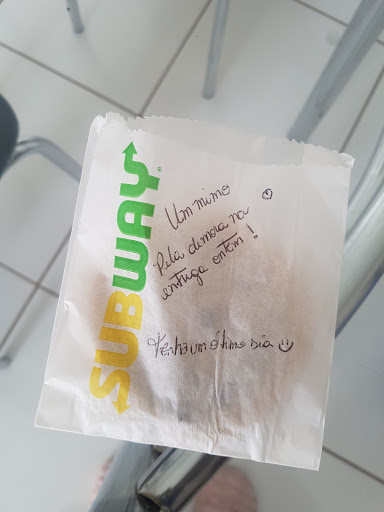 SUBWAY
Um mimo
Pela demora na
entrega ontem!
Tenha um ótimo Dia